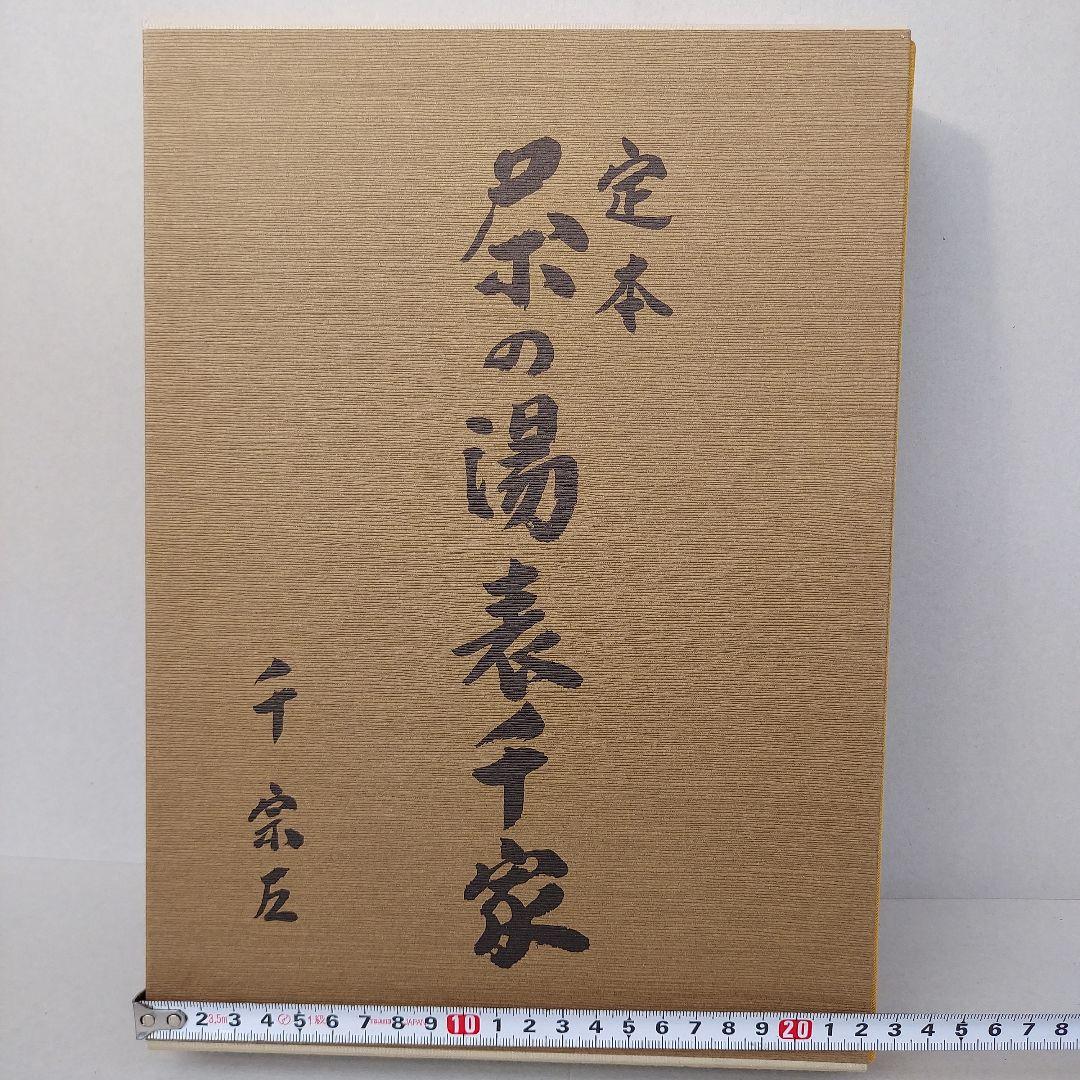 定本
茶の湯表千家
千宗左
2 3.5m 3 4 5 1級 6 7 8 9 10 1 2 3 4 5 6 7 8 9 20 1 2 3 4 5 6 7 8